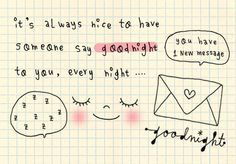 it's always nice to have
someone say goodnight
to you, every night ....
you have
1 new message
z z z
z z z
z z
goodnight